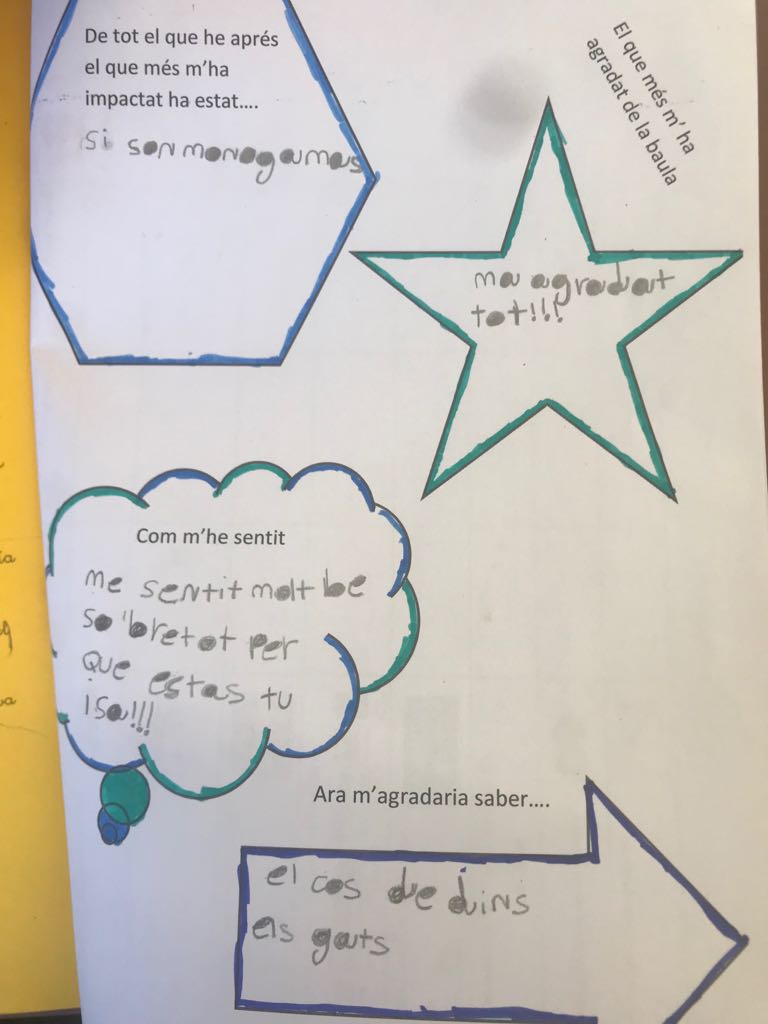 De tot el que he aprés
el que més m'ha
impactat ha estat....
si son monogamas
El que més m' ha
agradat de la baula
ma agradat
tot!!!
Com m'he sentit
me sentit molt be
so bretot per
que estas tu
isa!!!
Ara m'agradaria saber....
el cos de dins
els gats